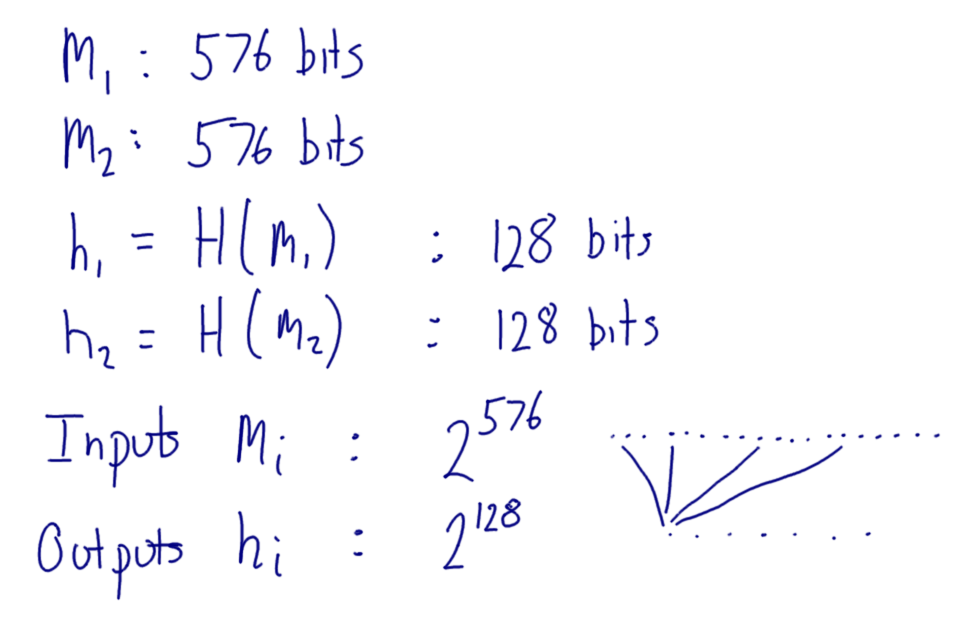 M₁ : 576 bits
M₂ : 576 bits
h₁ = H(M₁) : 128 bits
h₂ = H(M₂) : 128 bits
Inputs Mᵢ : 2⁵⁷⁶
Outputs hᵢ : 2¹²⁸